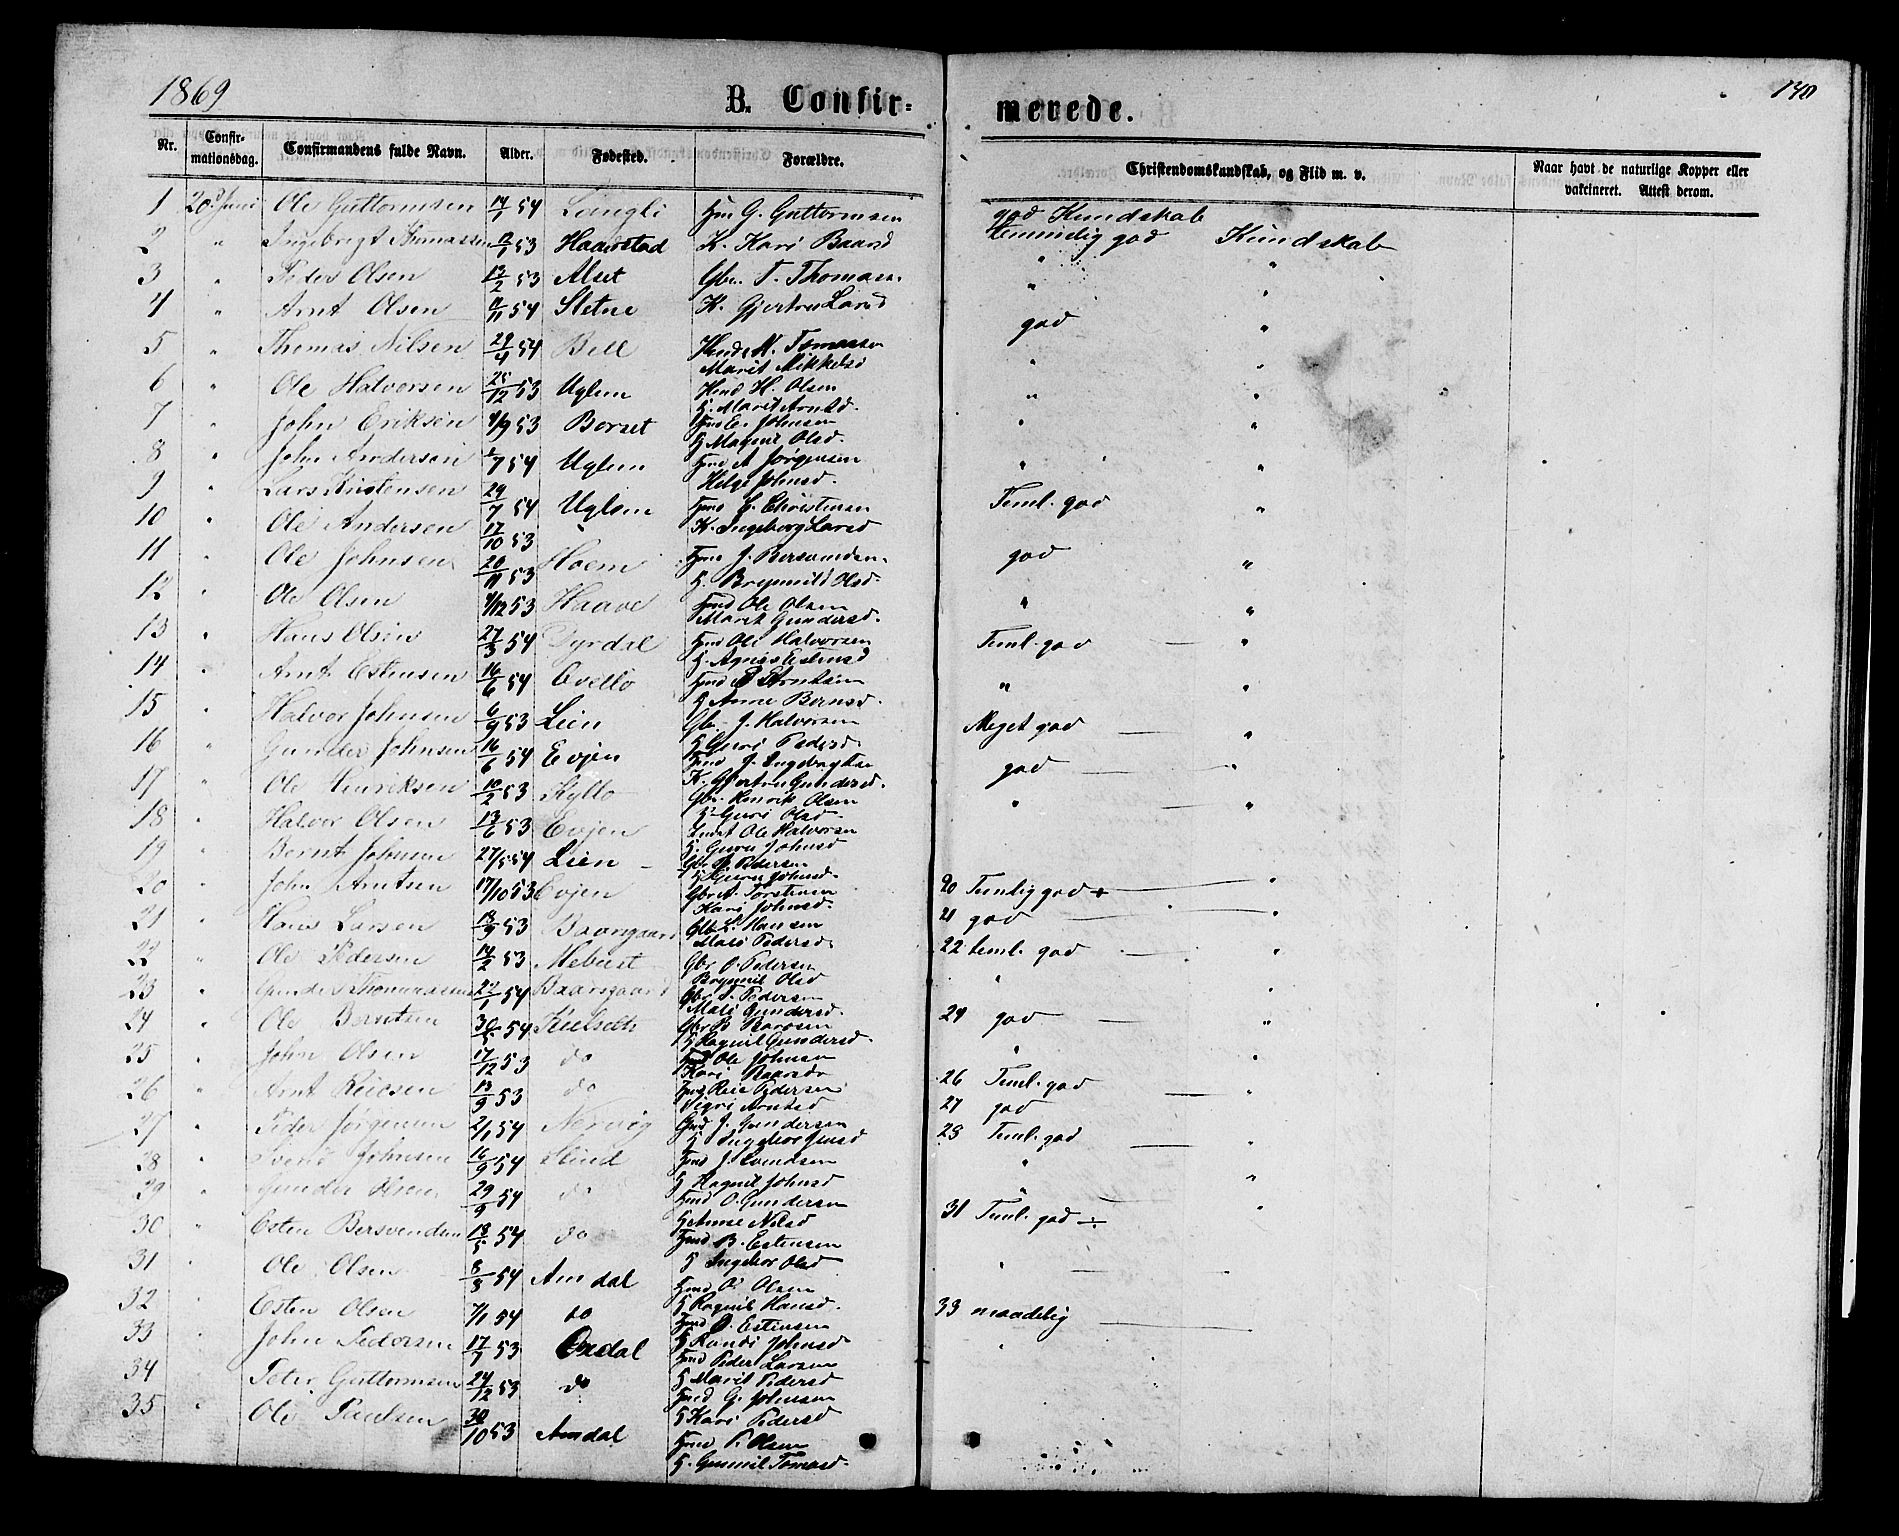 1869
B. Confir-
merede.
140
Nr.
Confir-
mationsdag.
Confirmandens fulde Navn.
Alder.
Fødested.
Forældre.
Christendomskundskab, og Flid m. v.
Naar havt de naturlige Kopper eller
vakcineret. Attest derom.
1 20d Juni Ole Guttormsen 14/1 54 Langli G. Guttormsen god Kundskab
2 " Ingebrigt Thomassen 53 Haarstad K. Kari Baard temmelig god Kundskab
3 " Peder Olsen 13/2 53 Alset T. Thomas " "
4 " Arnt Olsen 11/11 54 Sletne K. Gjertru Larsd " "
5 " Thomas Nilsen 29/4 54 Bell N. Tomassen god "
Marit Mikkelsd
6 " Ole Halvorsen 25/12 53 Uglem H. Olsen " "
Marit Arntsd.
7 " John Eriksen 4/9 53 Borset E. Johnsen " "
Magnil Olsd.
8 " John Andersen 7 54 Uglem A Jørgensen " "
Helge Johnsd.
9 " Lars Kristensen 29/7 54 Uglem C. Christensen Teml. god "
K. Ingeborg Larsd
10 " Ole Andersen 17/10 53 "
11 " Ole Johnsen 20/11 53 Hoem J. Bersvendsen god "
Brynnild Olsd.
12 " Ole Olsen 4/12 53 Haave Ole Olsen " "
Marit Gundersd.
13 " Hans Olsen 27/3 54 Dyrdal Ole Halvorsen Teml. god — "
Agnes Estensd
14 " Arnt Estensen 16/6 54 Evello E Arntsen " "
Anne Bernsd.
15 " Halvor Johnsen 6/9 53 Lien Gb. J. Halvorsen Meget god — "
Guri Pedersd.
16 " Gunder Johnsen 16/6 54 Evjen J. Ingebrigtsen god — "
K. Gjertru Gundersd.
17 " Ole Henriksen 10/2 53 Kyllo Gbr. Henrik Olsen " — "
Guri Olsd.
18 " Halvor Olsen 13/6 53 Evjen Ole Halvorsen
Guru Johnsd
19 " Bernt Johnsen 27/5 54 Lien Pedersen
Guru Johnsd.
20 " John Arntsen 17/10 53 Evjen Gbr A. Torstensen 20 Temlig god "
Kari Johnsd.
21 " Hans Larsen 18/9 53 Baarsgaard Gbr L. Hansen 21 god "
Mali Pedersd.
22 " Ole Pedersen 14/2 53 Mebust Gbr O. Pedersen 22 teml. god "
Brynnil Olsd
23 " Gunder Thomassen 22/1 54 Baarsgaard Gbr T. Pedersen " "
Mali Gundersd.
24 " Ole Berntsen 30/5 54 Kulseth Gbr B. Baarsen 24 god — "
Ragnil Gundersd.
25 " John Olsen 17/12 53 do Ole Johnsen " "
Kari Baarsdr
26 " Arnt Reiersen 13/9 53 do Reier Pedersen 26 Teml. god — "
Sigri Arntsd
27 " Peder Jørgensen 2/1 54 Nervig J. Gundersen 27 god
Ingebor Jensd
28 " Svend Johnsen 16/9 54 Slind J. Svendsen 28 Teml. god — "
Ragnil Johnsd
29 " Gunder Olsen 29/9 54 do O. Gundersen " "
Anne Nilsd
30 " Esten Bersvendsen 18/5 54 do B. Estensen " "
Ingebor Olsd
31 " Ole Olsen 8/3 54 Amdal O. Olsen 31 Teml. god ÷
Ragnil Hansd.
32 " Esten Olsen 7/1 54 do O. Estensen "
Randi Johnsd
33 " John Pedersen 17/7 53 Ondal Peder Larsen 33 maadelig
Marit Pedersd
34 " Peter Guttormsen 24/12 53 do G. Johnsen "
Kari Pedersd
35 " Ole Paulsen 30/10 53 Amdal P. Olsen
Gunnil Tomasd.